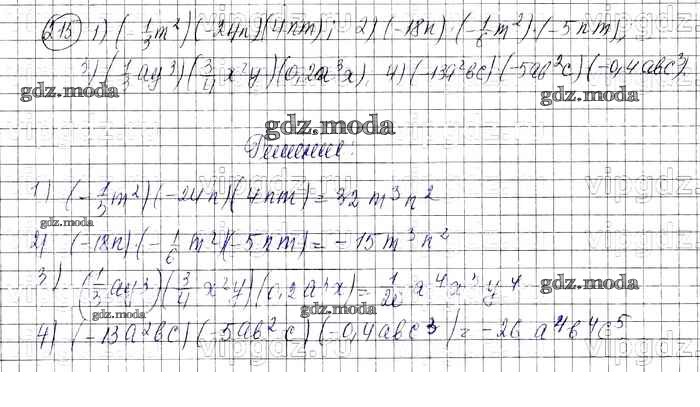 215 1) (-1/3 m²)(-24n)(4nm); 2) (-18n)·(-1/6 m²)·(-5nm);
3) (1/3 ay³)(3/4 x²y)(0,2a³x), 4) (-13a²bc)(-5ab²c)(-0,4abc³).
gdz.moda gdz.moda
gdz.moda
Решение:
1) (-1/3 m²)(-24n)(4nm) = 32 m³n²
gdz.moda
2) (-18n)·(-1/6 m²)(-5nm) = -15m³n²
3) (1/3 ay³)(3/4 x²y)(0,2a³x) = 1/20 a⁴x³y⁴
gdz.moda gdz.moda
4) (-13a²bc)(-5ab²c)(-0,4abc³) = -26 a⁴b⁴c⁵